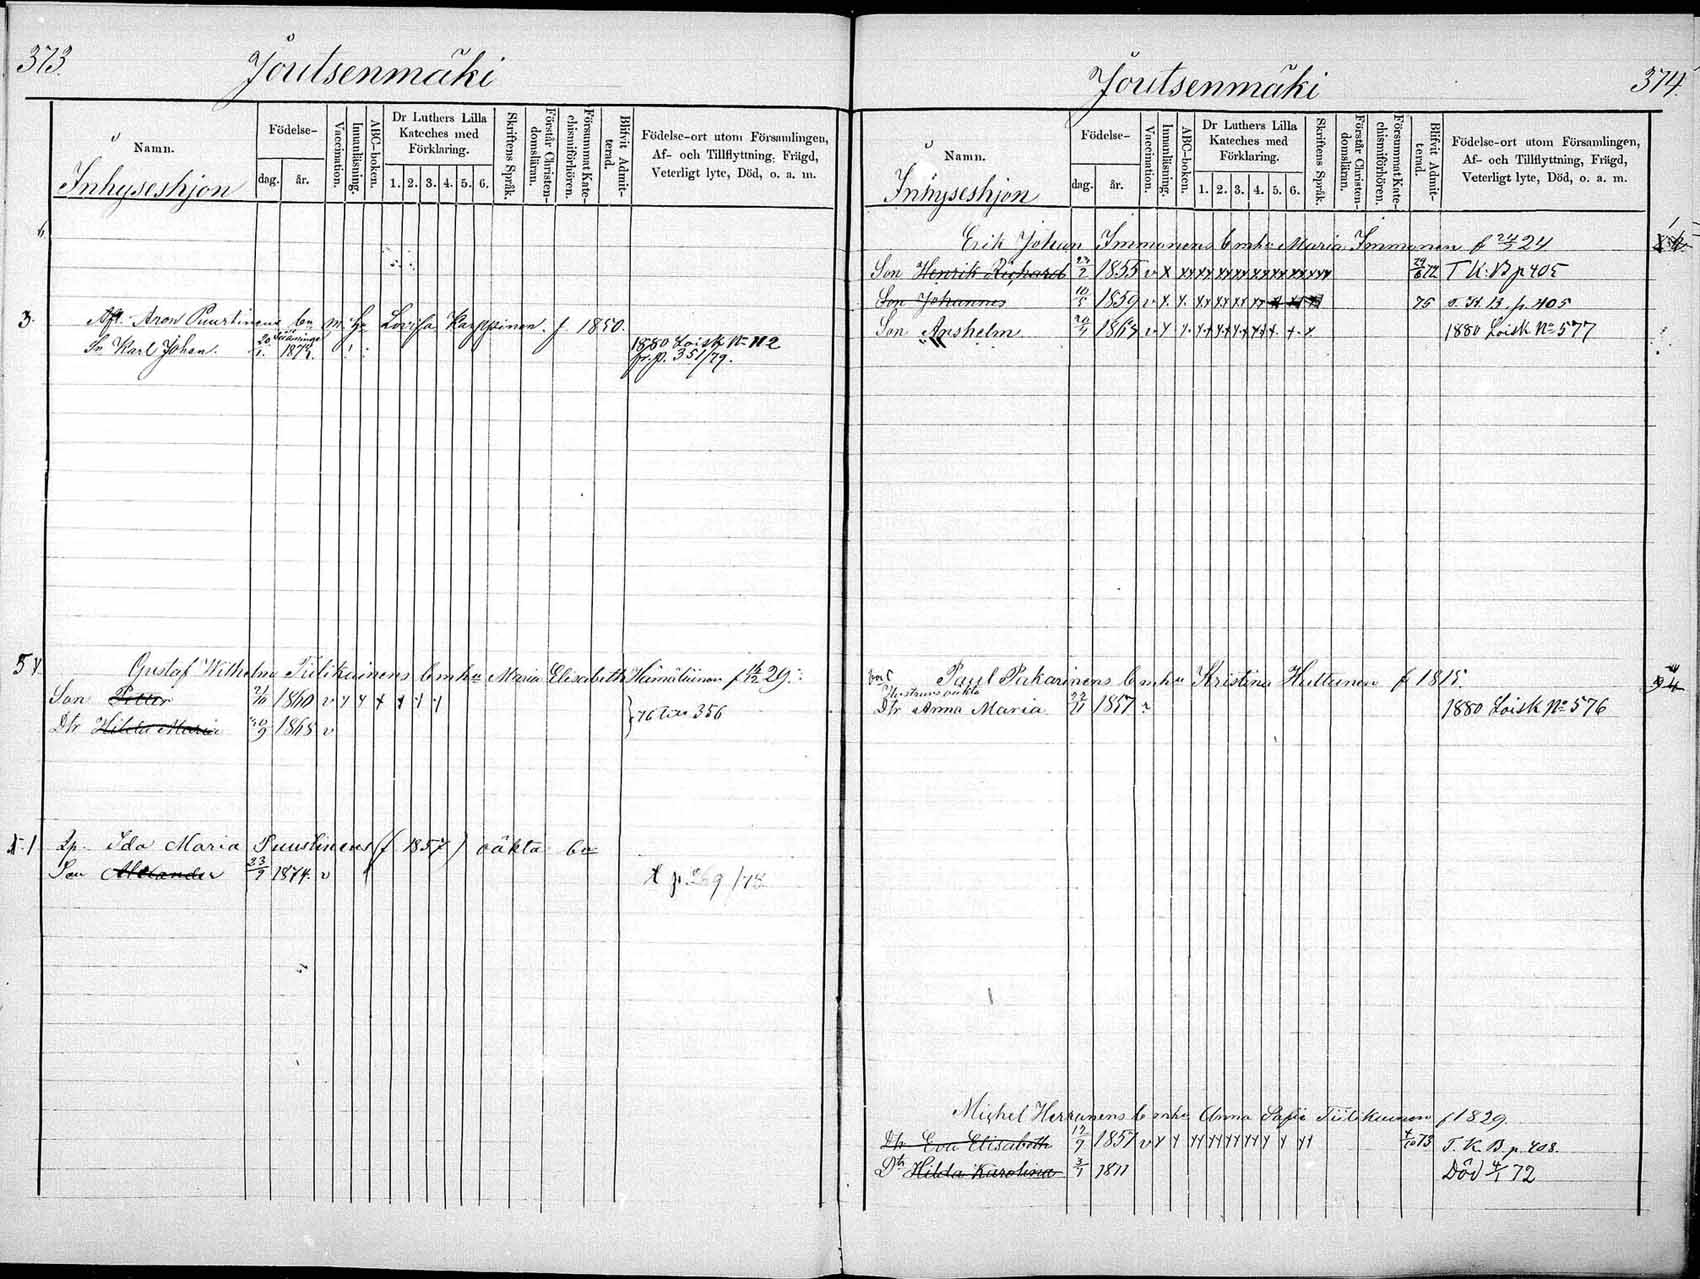 373.
Joutsenmäki
Namn.
Födelse-
dag.
år.
Vaccination.
Innanläsning.
ABC-boken.
Dr Luthers Lilla
Kateches med
Förklaring.
1. 2. 3. 4. 5. 6.
Skriftens Språk.
Förstår Christen-
domsläran.
Försummat Kate-
chismiförhören.
Blifvit Admit-
terad.
Födelse-ort utom Församlingen,
Af- och Tillflyttning, Frägd,
Veterligt lyte, Död, o. a. m.
Inhyseshjon
6
3.
Aron Puustinens bn m. Lovisa Karppinen f 1850.
Sn Karl Johan. 1874. 1880 Loisk No 112
fr. p. 351/79.
5
Gustaf Wilhelm Tiilikainens b m hu Maria Elisabeth f 29
Son Petter 21/10 1860 v
76 356
Dtr Hilda Maria 20/9 1865 v
1
Ida Maria Puustinens (f 1857) oäkta bn
Son Alexander 23/9 1874. v
p 269/78
374.
Joutsenmäki
Namn.
Födelse-
dag.
år.
Vaccination.
Innanläsning.
ABC-boken.
Dr Luthers Lilla
Kateches med
Förklaring.
1. 2. 3. 4. 5. 6.
Skriftens Språk.
Förstår Christen-
domsläran.
Försummat Kate-
chismiförhören.
Blifvit Admit-
terad.
Födelse-ort utom Församlingen,
Af- och Tillflyttning, Frägd,
Veterligt lyte, Död, o. a. m.
Inhyseshjon
Erik Johan Immonens b m hu Maria Immonen f 24
Son Henrik Richard 1855 v x 72 T. K. B p 405
Son Johannes 10/5 1859 v x 75 p. 405
Son Anshelm 1864 v 1880 Loisk No 577
Paul Pakarinens b m hu Kristina Huttunen f 1815.
Dtr Anna Maria 22/11 1857 1880 Loisk No 576
Michel Herranens b m hu Anna Sofia Tiilikainen f 1829.
Dtr Eva Elisabeth 1857 v 73 T. K. B. p. 408.
Dtr Hilda Karolina 3/1 1871 Död 4/1 72